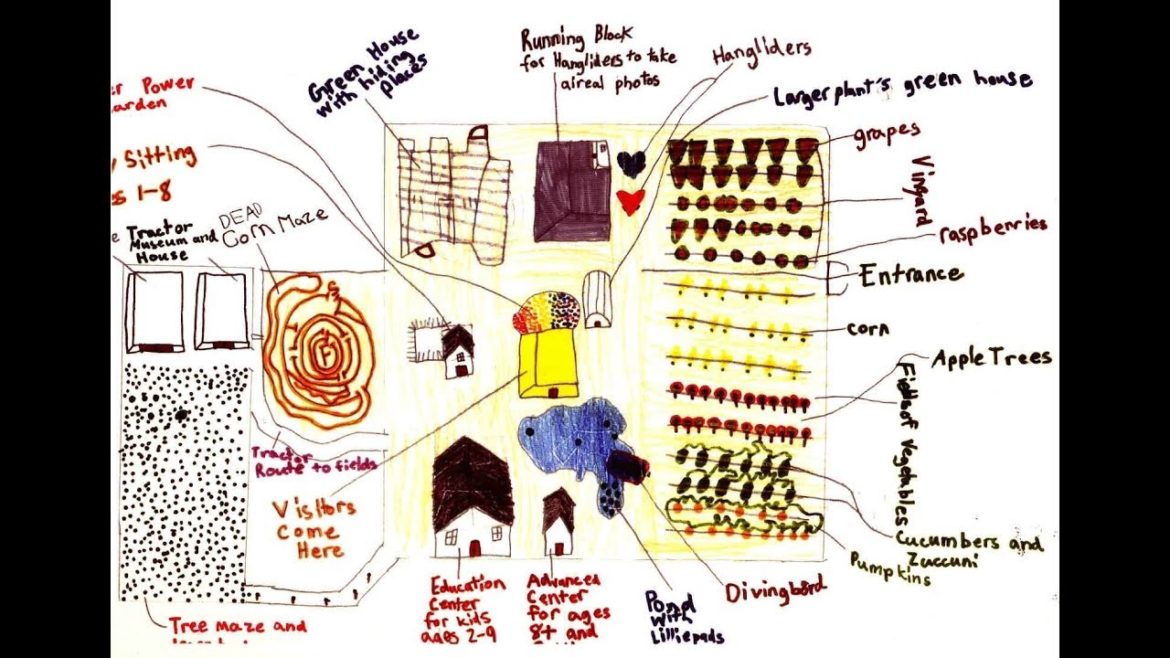 Green House
with hiding
places
Running Block
for Hangliders to take
aireal photos
Hangliders
Larger plant's green house
Power
Sitting
1-8
Tractor
Museum and
House
DEAD
Corn Maze
grapes
Vingard
raspberries
Entrance
corn
Apple Trees
Field of Vegetables
Cucumbers and
Zuccuni
Pumpkins
Tractor
Route to fields
Visitors
Come
Here
F
Tree maze and
Education
Center
for kids
ages 2-9
Advanced
Center
for ages
8+ and
Pond
with
Lilliepads
Divingbord